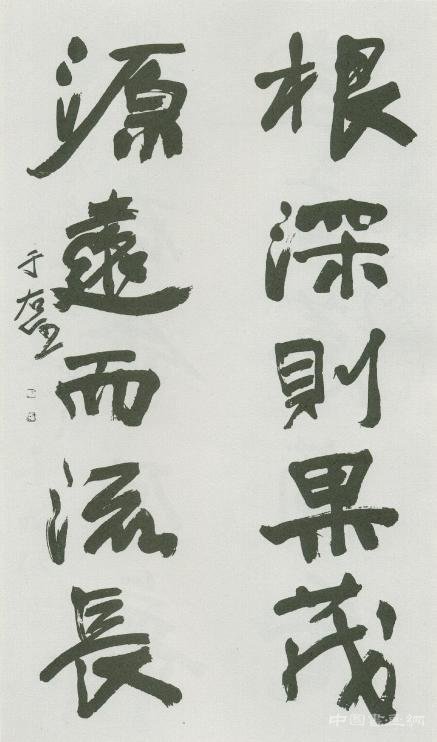 根深則果茂
源遠而流長
于右任
中国书画网